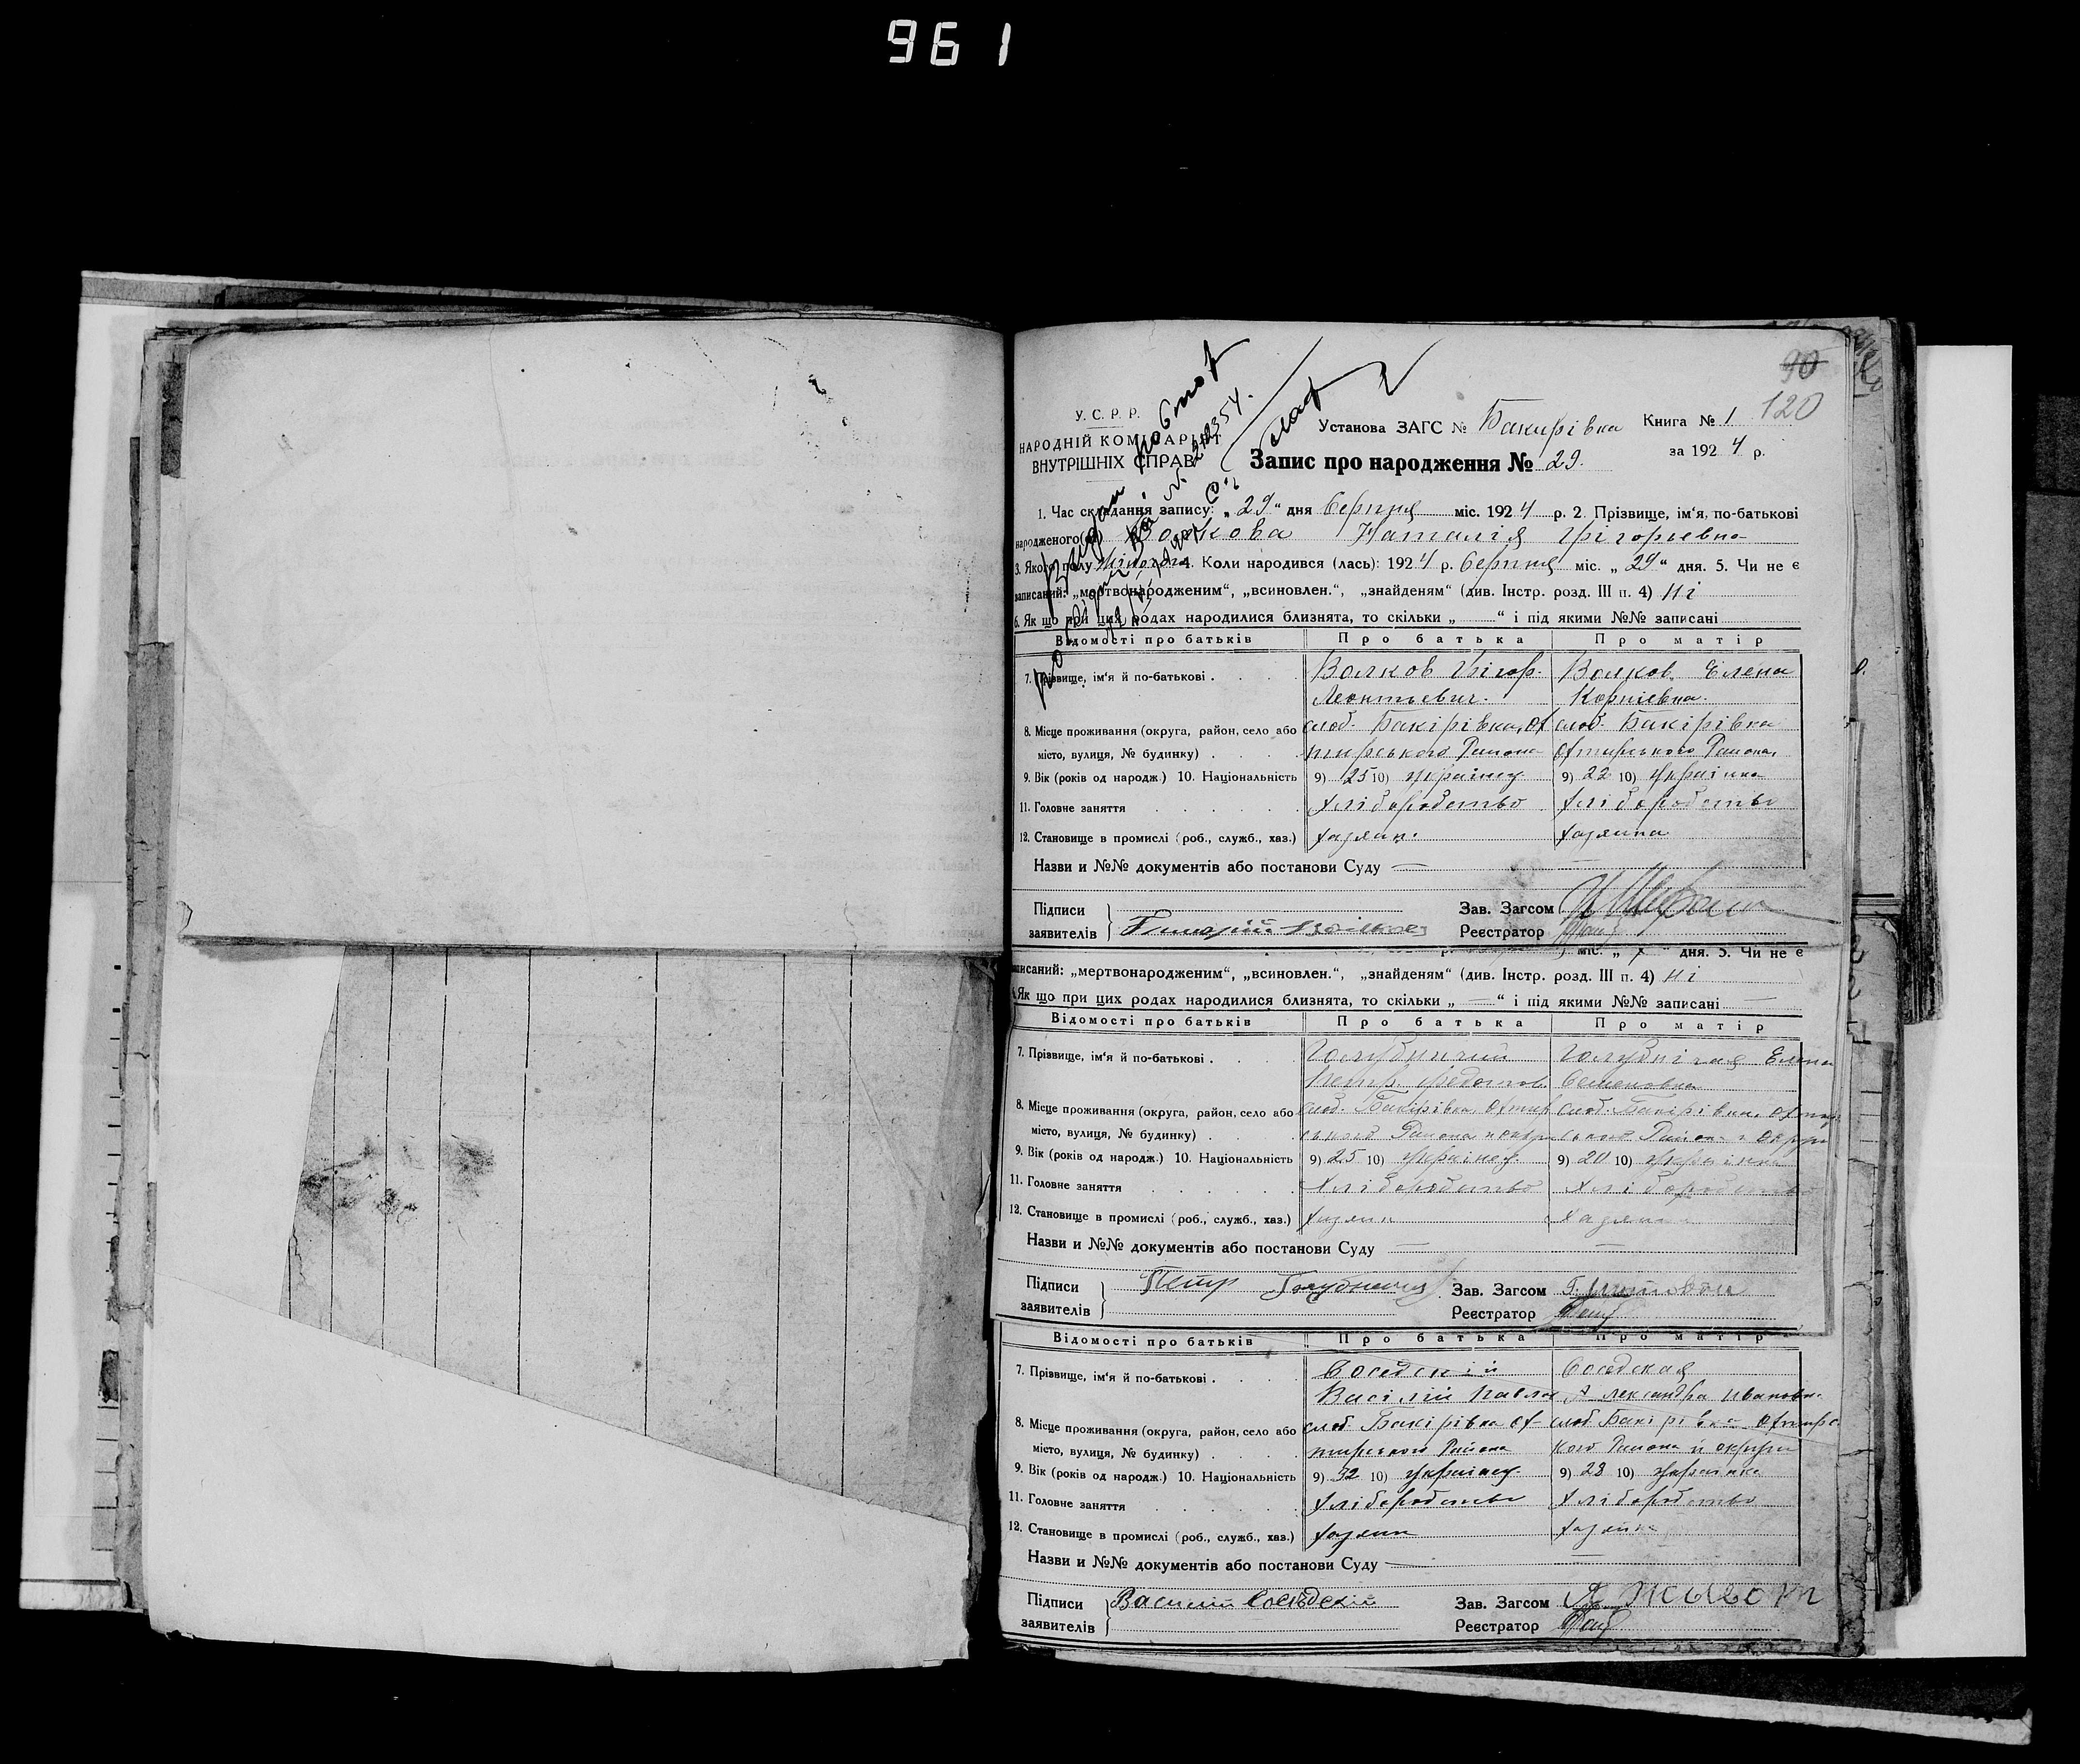 961
90
120
У. С. Р. Р.
НАРОДНІЙ КОМІСАРІАТ
ВНУТРІШНІХ СПРАВ
Установа ЗАГС № Бакирівка Книга № 1
за 1924 р.
Запис про народження № 29.
1. Час складання запису: „29“ дня Серпня міс. 1924 р. 2. Прізвище, ім'я, по-батькові
народженого Волкова Наталія Грігорьевна
3. Якого полу Жіночого 4. Коли народився (лась): 1924 р. Серпня міс. „29“ дня. 5. Чи не є
записаний: „мертвонародженим“, „всиновлен.“, „знайденям“ (див. Інстр. розд. III п. 4) Ні
6. Як що при цих родах народилися близнята, то скільки „ “ і під якими №№ записані
Відомості про батьків Про батька Про матір
7. Прізвище, ім'я й по-батькові Волков Грігор. Волков Елена
Леонтьевич. Корніевна.
8. Місце проживання (округа, район, село або слоб. Бакірівка, Ох слоб. Бакірівка
місто, вулиця, № будинку) тирського Района Охтирського Района,
9. Вік (років од народж.) 10. Національність 9) 25 10) Українец 9) 22 10) Українка
11. Головне заняття Хліборобство Хліборобство
12. Становище в промислі (роб., служб., хаз.) хазяин. хазяика
Назви и №№ документів або постанови Суду —
Підписи Зав. Загсом
заявителів Реєстратор
міс. „ “ дня. 5. Чи не є
записаний: „мертвонародженим“, „всиновлен.“, „знайденям“ (див. Інстр. розд. III п. 4) Ні
Як що при цих родах народилися близнята, то скільки „ — “ і під якими №№ записані —
Відомості про батьків Про батька Про матір
7. Прізвище, ім'я й по-батькові Голубничий Голубнічая Елена
Петр Федотов. Семеновна
8. Місце проживання (округа, район, село або слоб. Бакірівка, Охтир слоб. Бакірівка, Охтир
місто, вулиця, № будинку) ського Района и округи ського Района и округи
9. Вік (років од народж.) 10. Національність 9) 25 10) Українец. 9) 20 10) Українка
11. Головне заняття Хліборобство Хліборобство
12. Становище в промислі (роб., служб., хаз.) хазяин хазяика
Назви и №№ документів або постанови Суду —
Підписи Петр Зав. Загсом
заявителів Реєстратор
Відомості про батьків Про батька Про матір
7. Прізвище, ім'я й по-батькові Соседскій Соседская
Васілій Павлов Александра Ивановн.
8. Місце проживання (округа, район, село або слоб. Бакірівка Ох слоб. Бакірівка Охтирс
місто, вулиця, № будинку) тирського Района кого Района и округи
9. Вік (років од народж.) 10. Національність 9) 32 10) Українец. 9) 28 10) Українка
11. Головне заняття Хліборобство Хліборобство
12. Становище в промислі (роб., служб., хаз.) хазяин хазяика
Назви и №№ документів або постанови Суду —
Підписи Василий Соседский Зав. Загсом
заявителів Реєстратор